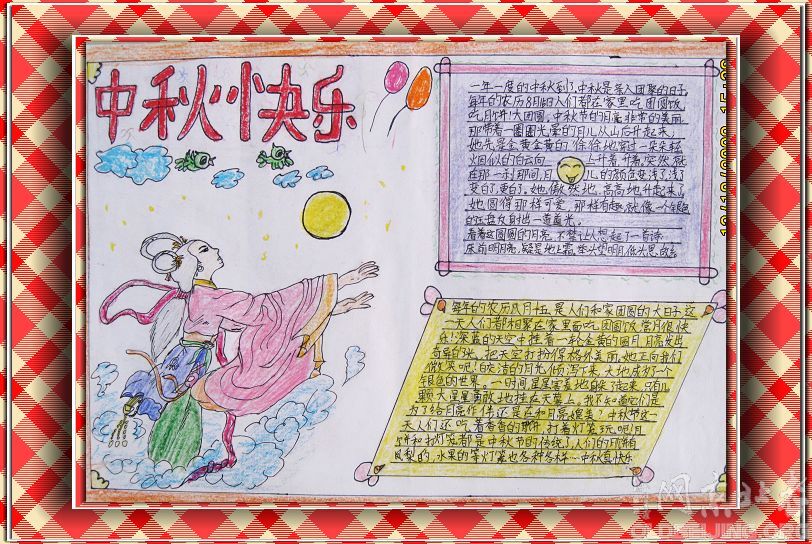 中秋快乐
一年一度的中秋到了,中秋是亲人团聚的日子,
每年的农历8月15日人们都在家里吃团圆饭
吃月饼!大团圆,中秋节的月亮非常的美丽
那带着一圈圈光晕的月儿从山后升起来,
她先是金黄金黄的,徐徐地穿过一朵朵轻
烟似的白云向 上升着,升着,突然,就
在那一刹那间,月 儿的颜色变浅了,浅了
变白了,更白了,她傲然地,高高地升起来了
她圆得那样可爱,那样有趣,就像一个银色
的 盘反射出一道蓝光。
看着这圆圆的月亮,不禁让人想起了一首诗
床前明月光,疑是地上霜,举头望明月,低头思故乡
每年的农历八月十五,是人们和家团圆的大日子,这
一天人们都相聚在家里面吃团圆饭,赏月,很快
乐!深蓝的天空中挂着一枚金黄的圆月,月亮发出
把天空打扮得格外美丽,她正向我们
微笑呢!皎洁的月光倾泻下来,大地成了一个
银色的世界。一时间星星害羞地躲了起来,只有几
颗大星星勇敢地挂在天幕上,我不知道它们是
为了给月亮作伴还是在和月亮媲美?中秋节这一
天人们还吃着香香的月饼,打着灯笼玩呢!月
饼和打灯笼都是中秋节的传统了,人们的月饼有
凤梨的,水果的等灯笼也各种各样……中秋真快乐
OLDBEIJING.ORG